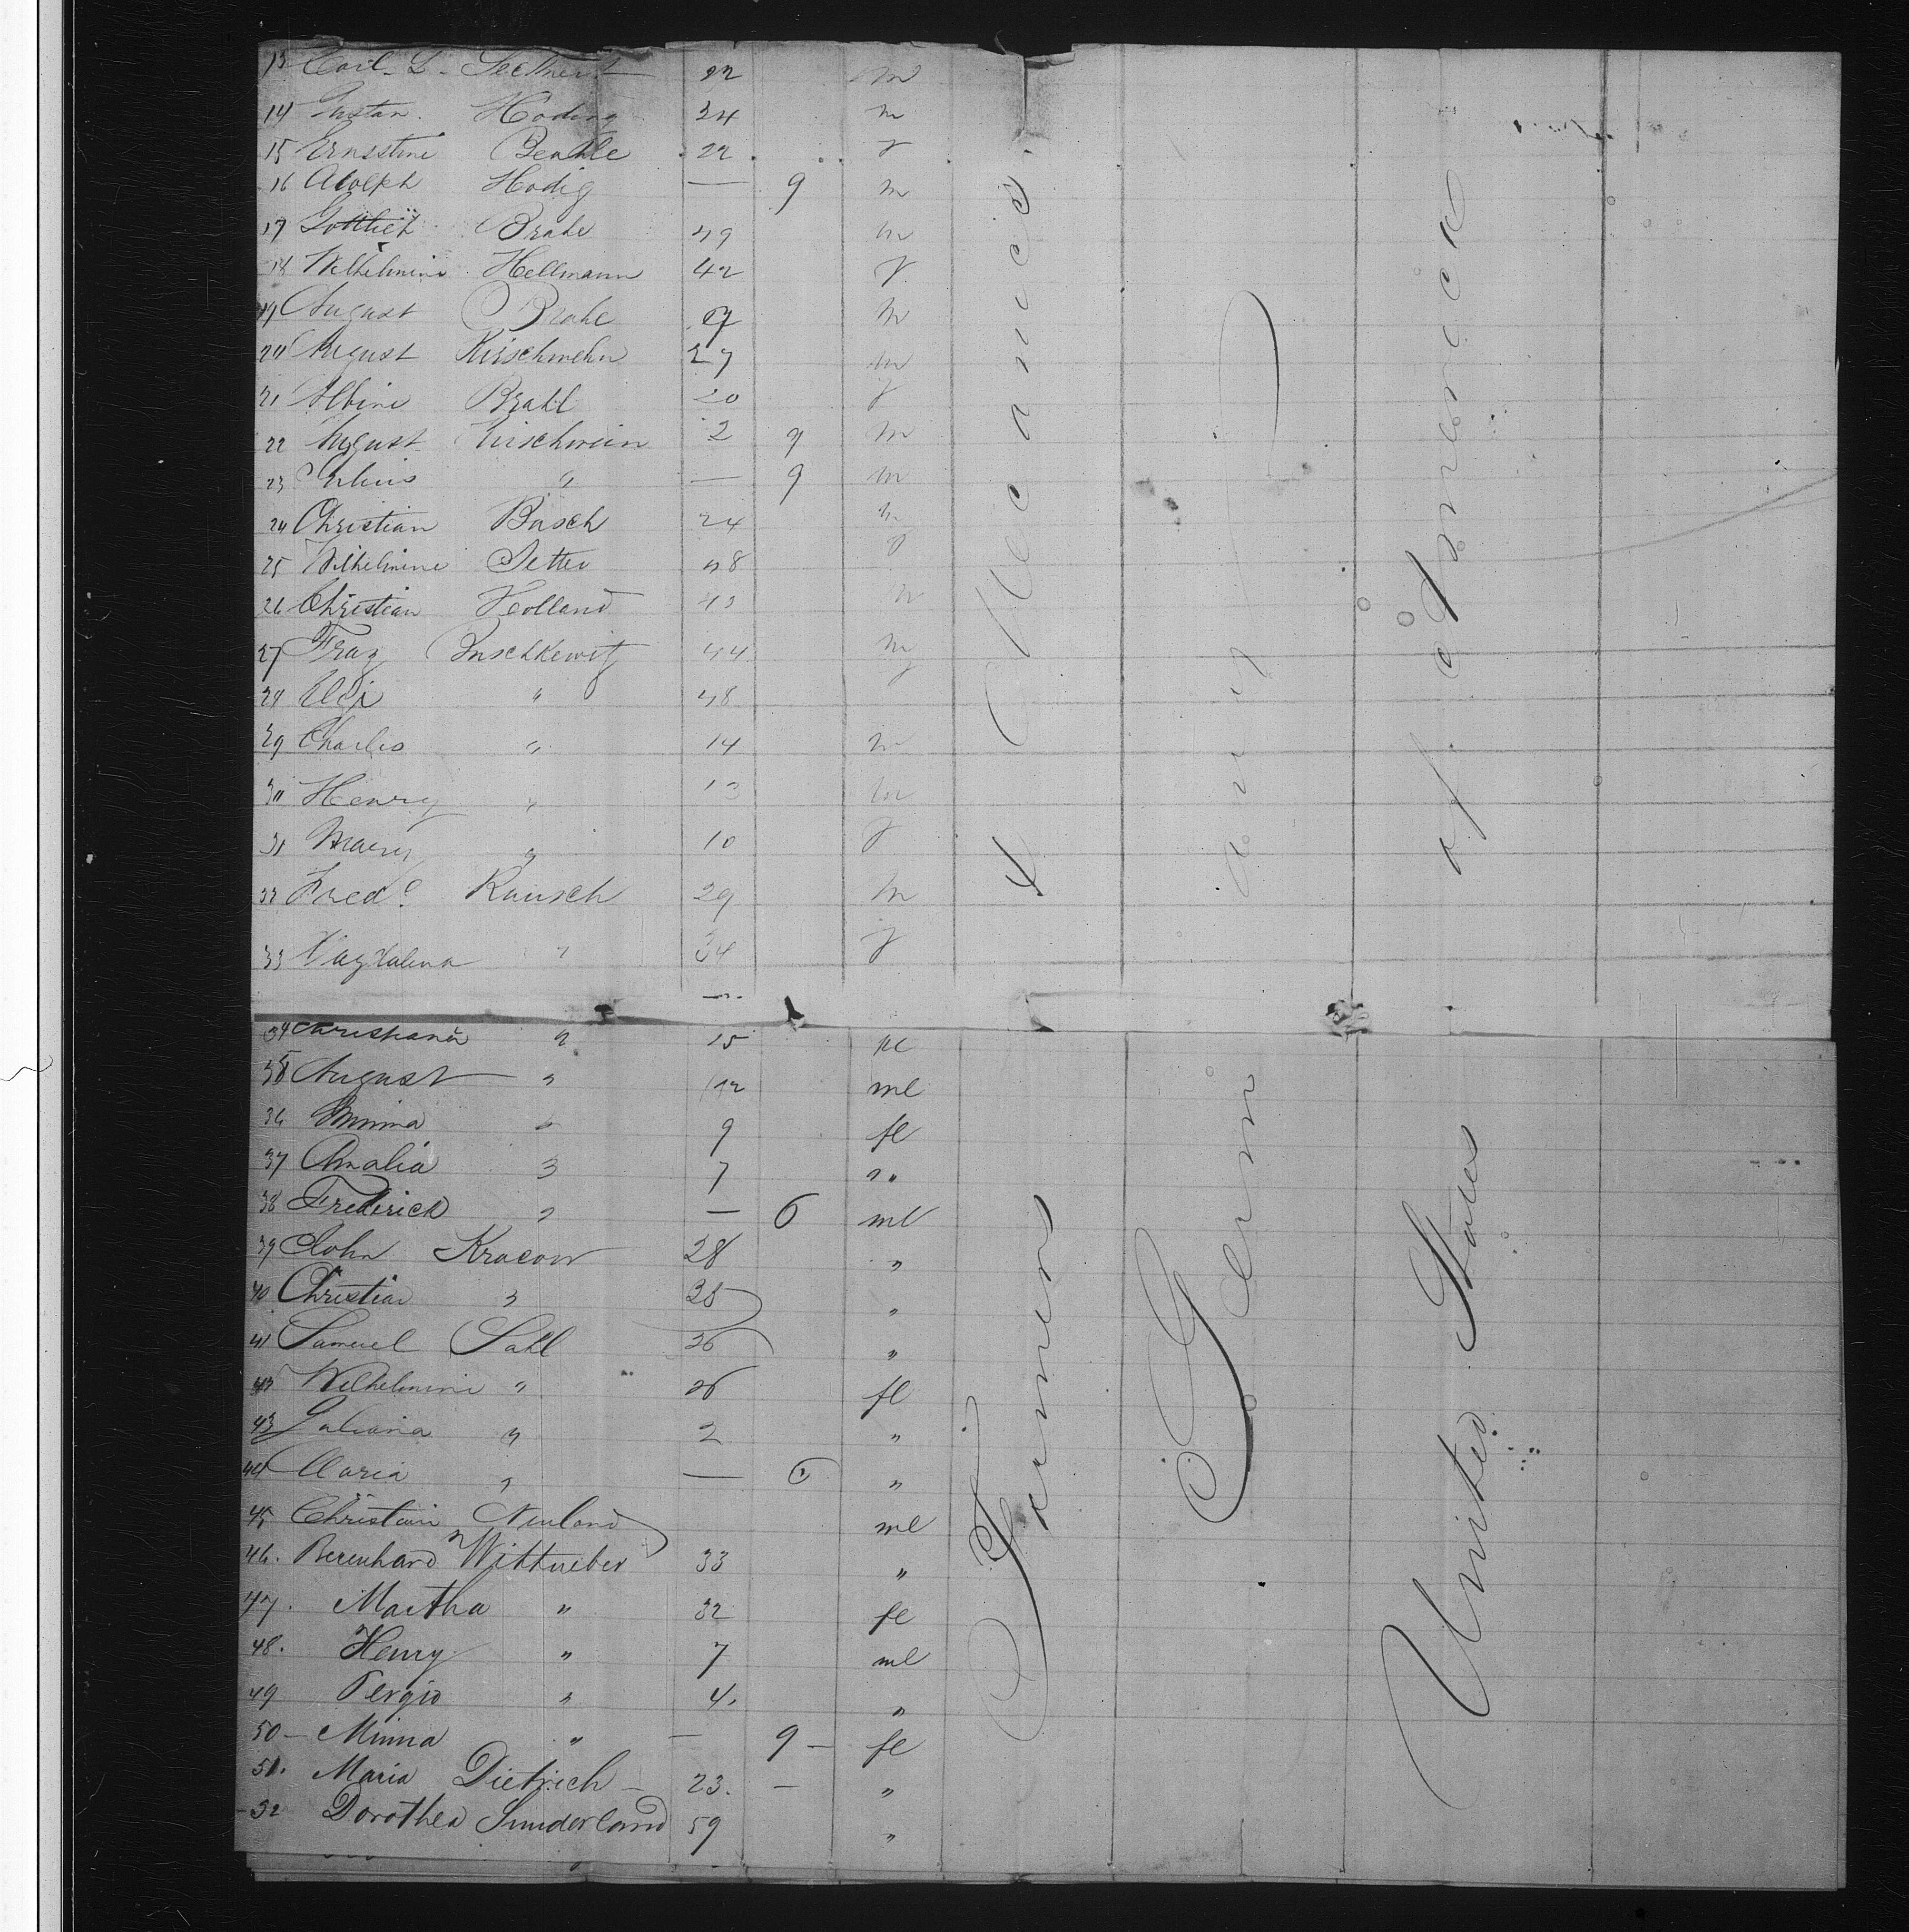 13 Carl L. 22 m
14 Gustav. Hoding 24 m
15 Ernsstine Benkle 22 f
16 Adolph Hodig — 9 m
17 Gottlieb Brahe 49 m
18 Wilhelmine Hellmann 42 f
19 August Brahe 9 m
20 August Kirschwehn 27 m
21 Albine Brahl 20 f
22 August Kirschwein 2 9 m
23 Julius " — 9 m
24 Christian Busch 24 m
25 Wilhelmine Setter 48 f
26 Christian Holland 43 m
27 Franz Buschkewitz 44 m
28 " 48 f
29 Charles " 14 m
30 Henry " 13 m
31 Mary " 10 f
32 Fred. Rausch 29 m
33 Magdalena " 34 f
& Mecanics
any
of America
34 Christiana " 15
35 August " 12 ml
36 Minna " 9 fl
37 Amalia " 7 "
38 Frederick " — 6 ml
39 John Kracow 28 "
40 Christian " 25 "
41 Samuel Sahl 26 "
42 Wilhelmine " 26 fl
43 Juliana " 2 "
44 Maria " — 6 "
45 Christian Neuland ml
46. Berenhard Wittneber 33 "
47. Martha " 32 fl
48. Henry " 7 ml
49 " 4. "
50 — Minna " — 9 — fl
51. Maria Dietrich — 23. — "
52 Dorothea Sunderland 59 "
Farmers
Germ
United States